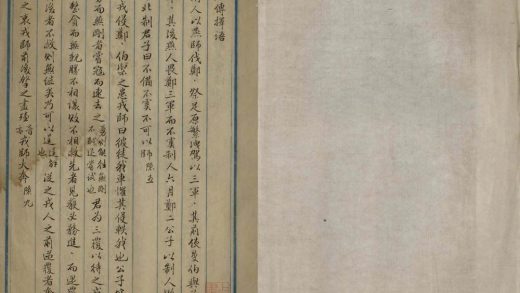 傳擇語
人以燕師伐鄭祭足原繁洩駕以三軍其前使曼伯與
其後燕人畏鄭三軍而不虞制人六月鄭二公子以制人
北制君子曰不備不虞不可以師 隱五
戎侵鄭伯禦之患戎師曰彼徒我車懼其侵軼我也公子
而無剛者嘗寇而速去之 勇則能往無剛不恥退嘗試也 君為三覆以待之戎
整貪而無親勝不相讓敗不相救先者見獲必務進而遇
後者不救則無繼矣乃可以逞 逞解也 從之戎人之前遇覆者奔
之衷戎師前後擊之盡殪 戎師大奔 隱九